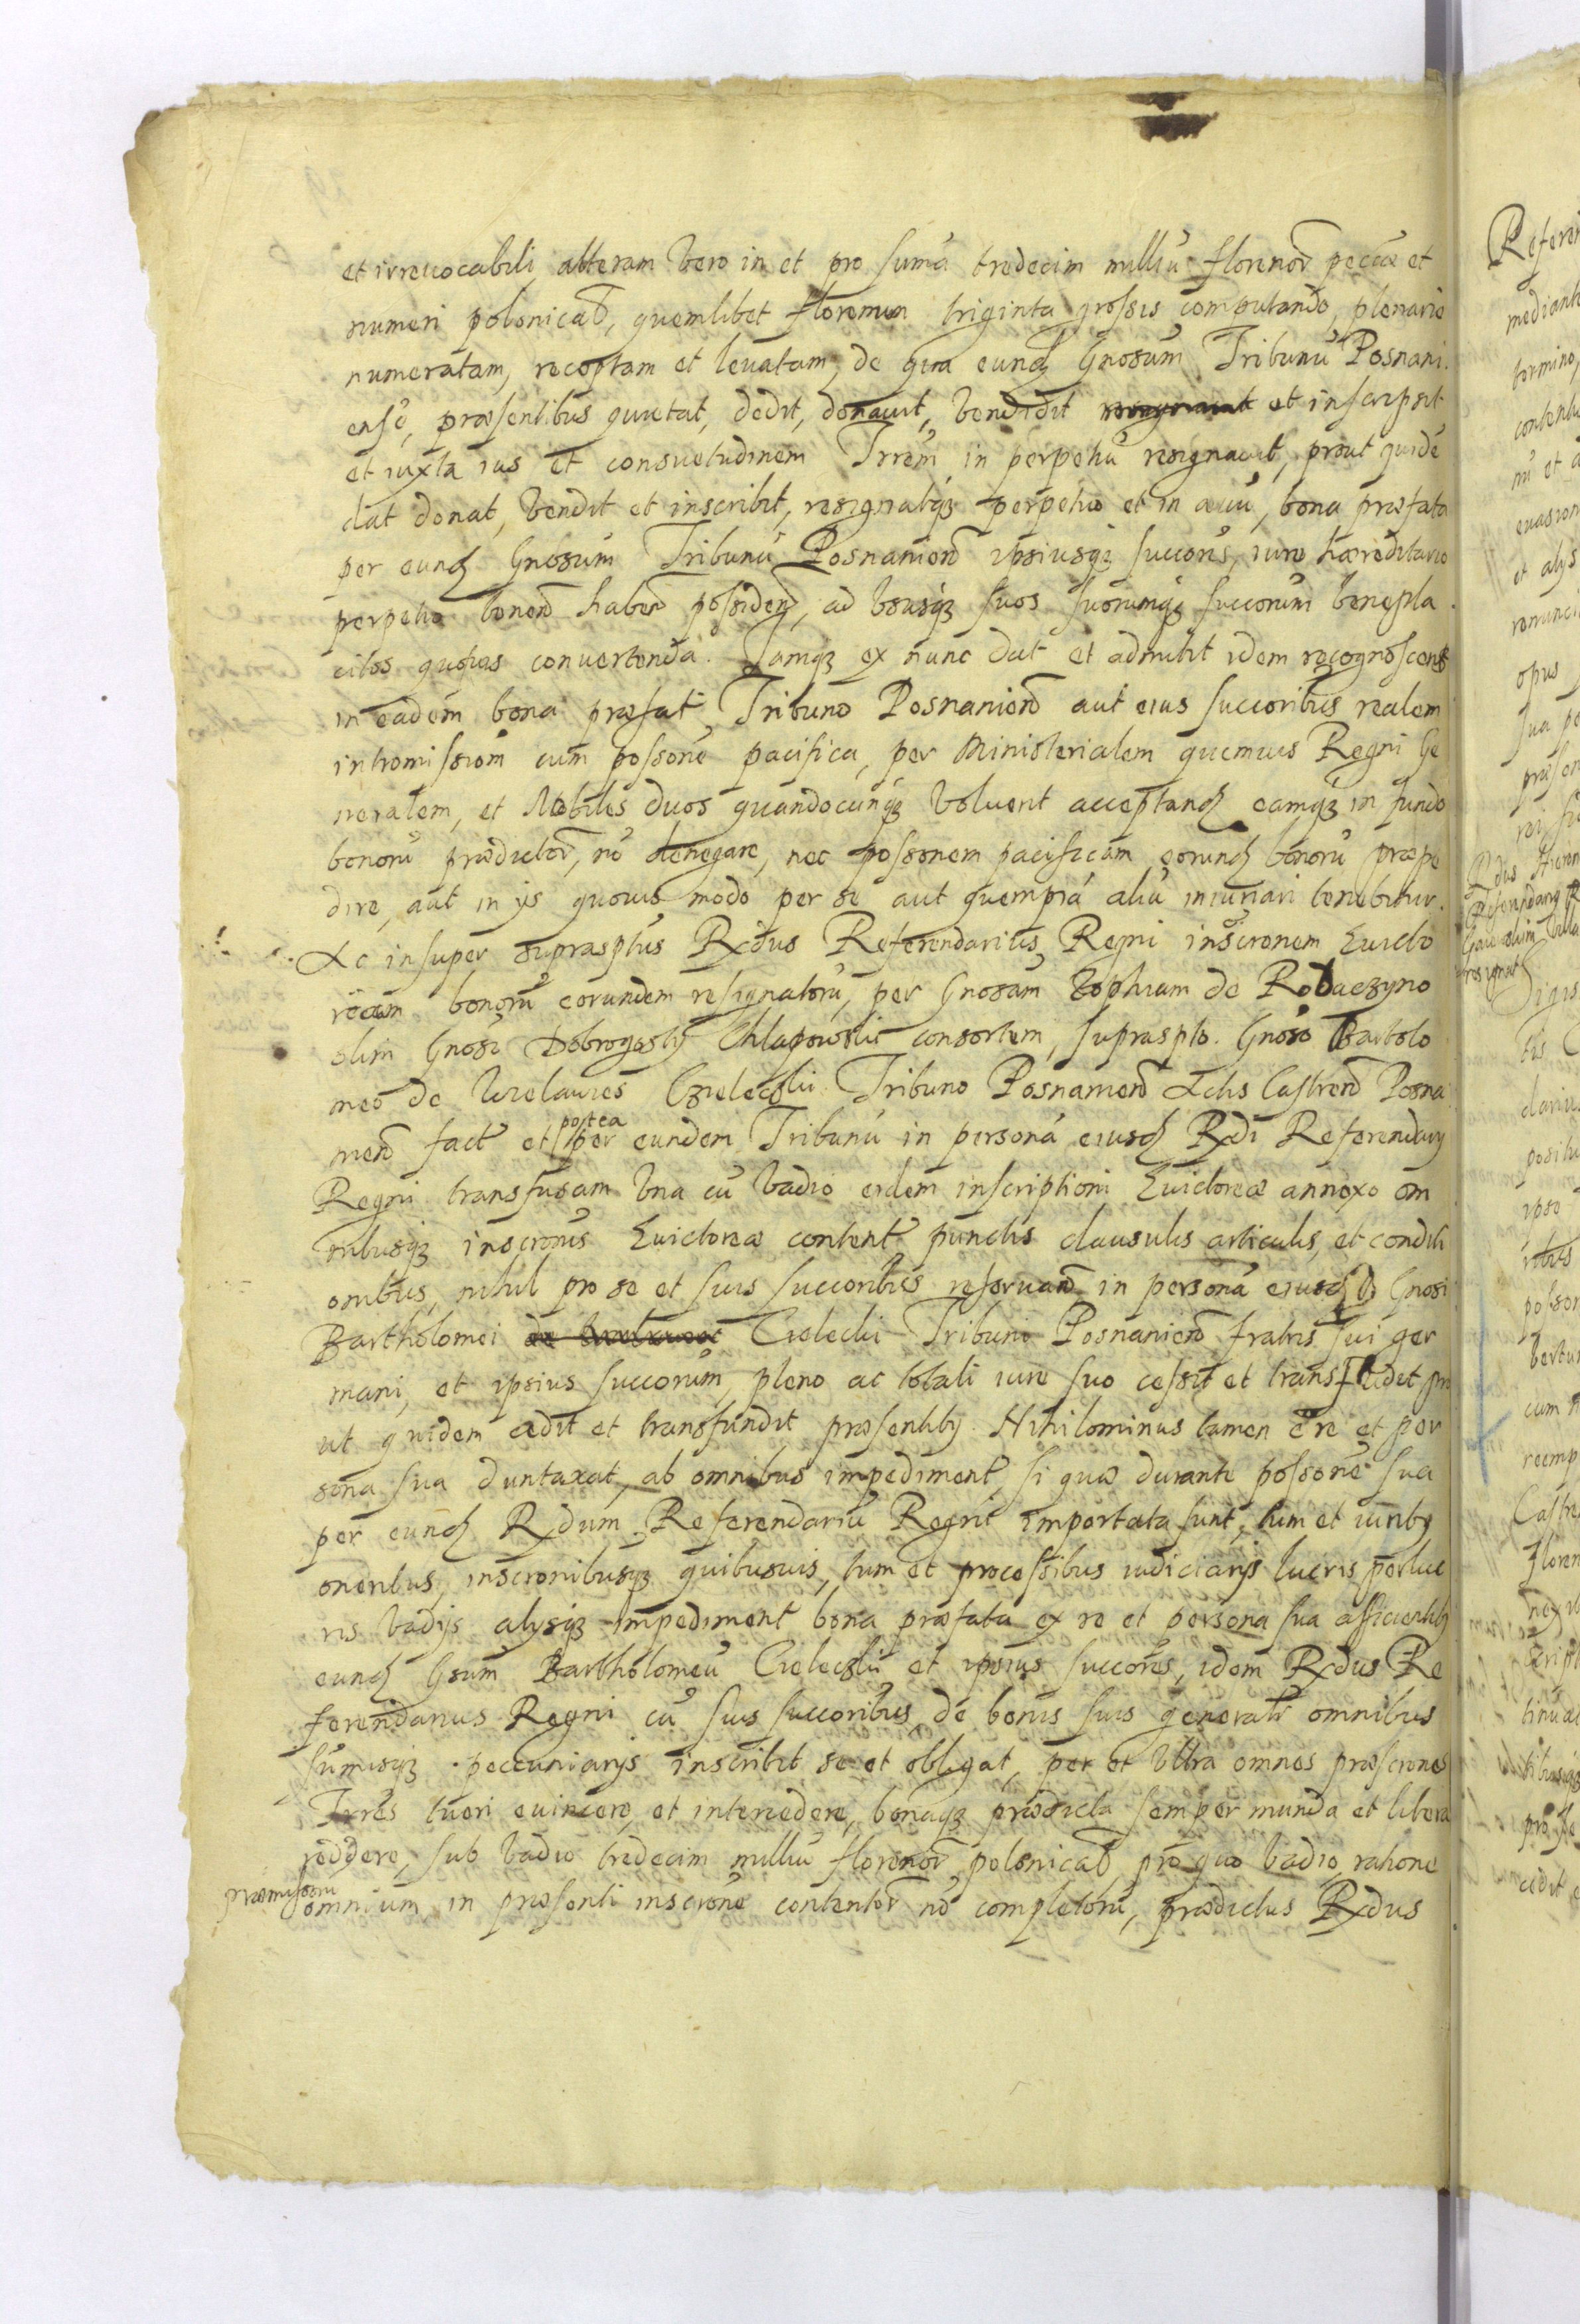 et irreuocabili, alteram vero in et pro suma tredecim milliu florenor pecćae et
numeri polonicał, quemlibet florenum triginta grossis computando, plenarie
numeratam, receptam et leuatam, de qua eund Gnosum Tribunu Posnani
ense, præsentibus quietat, dedit, donauit, vendidit et inscripsit
et iuxta ius et consuetudinem Trrem in perpetuu resignauit, prout quide
dat donat, vendit et inscribit, resignatqz perpetuo et in aeuu, bona præfata
per eund Gnosum Tribunu Posnanien ipsiusqz succores, iure hæreditario
perpetuo tenen haben possiden, ad vsusqz suos suorumqz succorum benepla
citos quosuis conuertenda. Iamqz ex nunc dat et admittit idem recognoscens
in eadem bona præfat Tribuno Posnanien aut eius succoribus realem
intromissiom cum possone pacifica, per Ministerialem quemuis Regni Ge
neralem, et Nobiles duos quandocunqz voluerit acceptand eamqz in fundo
bonoru prædictor, no denegare, nec possonem pacificam eorund bonoru præpe
dire, aut in ijs quouis modo per se aut quempia aliu iniuriari tenebitur.
Ac insuper suprasptus Rxdus Referendarius Regni inscronem Euicto
ream bonoru eorundem resignatoru, per Gnosam Zophiam de Rodaczyno
olim Gnosi Dobrogostij Chlapowski consortem, supraspto Gnoso Bartolo
meo de Wielawies Czieleczki Tribuno Posnanien Actis Castren Posna
nien fact et per eundem Tribunu in persona eiusd Rxdi Referendarij
postea
Regni transfusam vna cu vadio eidem inscriptioni Euictoreæ annexo om
nibusqz inscronis Euictoreæ content punctis clausulis articulis, et conditi
onibus, nihil pro se et suis succoribus reseruan in persona eiusd Gnosi
Bartholomei Cieleckij Tribuni Posnanien fratris sui ger
mani, et ipsius succorum, pleno ac totali iure suo cessit et transfudit pro
ut quidem cedit et transfundit præsentibz. Nihilominus tamen e re et per
sona sua duntaxat, ab omnibus impediment, si quæ durante possone sua
per eund Rxdum Referendariu Regni importata sunt, tum et iuribz
oneribus, inscronibusqz quibusuis, tum et processibus iudiciarijs lucris perluc
ris vadijs alijsqz impediment bona præfata ex re et persona sua afficientibz
eund Gsum Bartholomeu Cieleczki et ipsius succores, idem Rxdus Re
ferendarius Regni cu suis succoribus de bonis suis generatr omnibus
sumisqz peccuniarijs inscribit se et obligat, per et vltra omnes præscrones
Trres tueri euincere, et intercedere, bonaqz prædicta semper munda et libera
reddere, sub vadio tredecim milliu florenor polonicał pro quo vadio, ratione
præmissoru
omnium in præsenti inscrone contentor no completoru, prædictus Rxdus